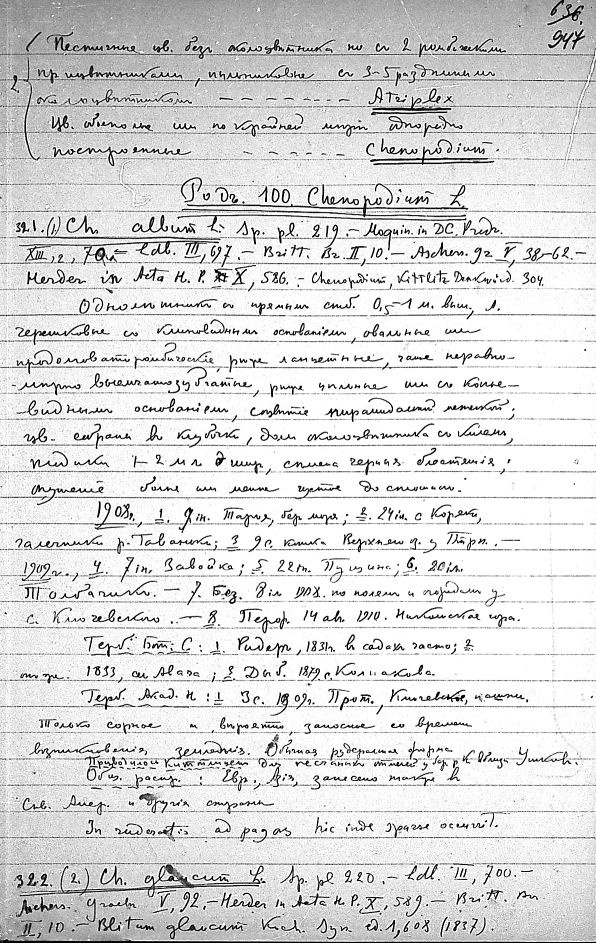 636.
947
Пестичные цв. безъ околоцвѣтника но съ 2 ромбическими
прицвѣтниками, пыльниковые съ 3-5 раздѣльным
2. околоцвѣтником - - - - - - - - Atriplex
Цв. обыполые или по крайней мѣрѣ однородно
построенные - - - - - - Chenopodium.
Родъ. 100. Chenopodium L.
321. (1) Ch. album L. Sp. pl. 219. - Moquin. in DC. Prodr.
XIII, 2, 70. - Ldb. III, 697. - Britt. Br. II, 10. - Aschers. gr. V, 38-62. -
Herder in Acta H. P. X, 586. - Chenopodium, Kittlitz Denkwürd. 304.
Однолѣтникъ съ прямымъ стеб. 0,5-1 м. выш., л.
черешковые со клиновиднымъ основаніемъ, овальные или
продолговато ромбические, рѣже ланцетные, чаще неравно-
-мѣрно выемчатозубчатые, рѣже цѣльные или съ копье-
-виднымъ основаніемъ, соцвѣтіе пирамидальной метелкой;
цв. собраны въ клубочки, доли околоцвѣтника съ килемъ,
плодики 1-2 мм шир., сѣмена черныя блестящія;
опушеніе болѣе или менѣе густое до сплошного.
1908 г., 1. 9 іл. Тарья, бер. моря; 2. 24 іл. с. Коряки,
галечники р. Гаванки; 3. 9 с. кошка Верхнего оз. у Тѣрн. -
1909 г., 4. 7 іл. Завойка; 5. 22 іл. Пущина; 6. 20 іл.
Толбачикъ. - 7. Без. 8 іл. 1908. по полямъ и огородам у
с. Ключевского. - 8. Перф. 14 ав. 1910. Никольская гора.
Герб. Бот. С: 1. Ридеръ, 1831 г. въ садахъ часто; 2.
онъ же. 1833, с. Авача; 3. Дыб. 1879 г. Колпакова.
Герб. Акад. Н: 1. 3 с. 1909 г. Прот., Ключевское, пашни.
Только сорное и, вѣроятно, заносное со времени
возникновенія земледѣлія. Обычная рудеральная форма
Приводилось Киттлицемъ для песчаныхъ отмелей у бер. р. К. близъ Ушковъ.
Общ. распр.: Евр., Азія, занесено также въ
Сѣв. Амер. и другія страны
In ruderatis ad pagos hic inde sparse occurrit.
322. (2.) Ch. glaucum L. Sp. pl. 220. - Ldb. III, 700. -
Aschers. Graebn. V, 92. - Herder in Acta H. P. X, 589. - Britt. Br.
II, 10. - Blitum glaucum Koch. Syn. ed. 1, 608 (1837).